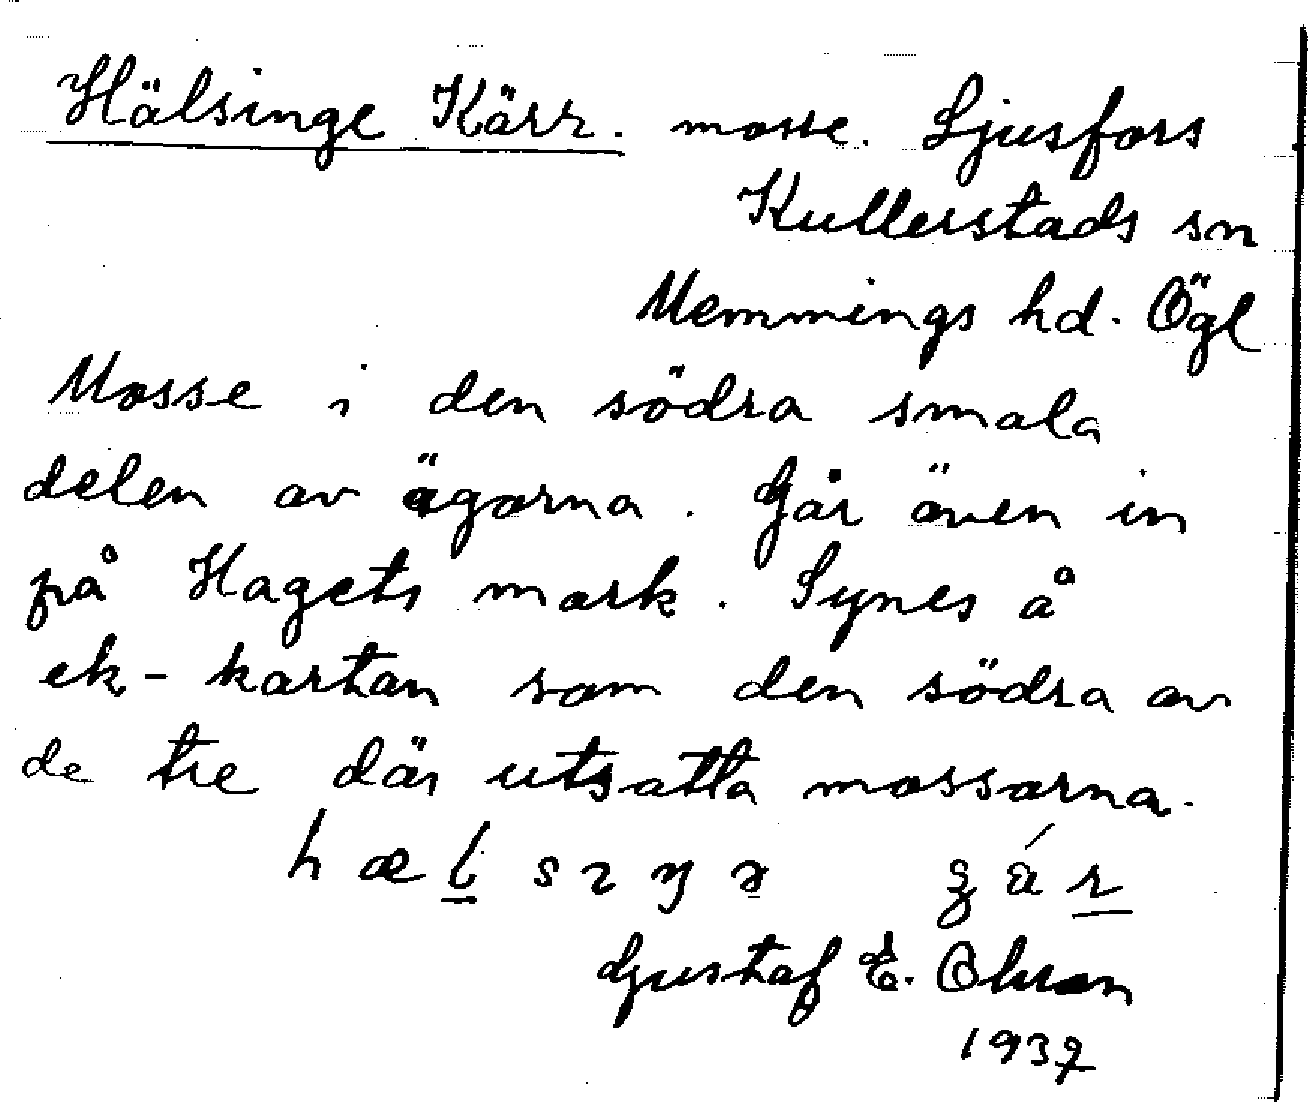 Hälsinge Kärr. mosse. Ljusfors
Kullerstads sn
Memmings hd. Ögl
Mosse i den södra smala
delen av ägorna. Går även in
på Hagets mark. Synes å
ek-kartan som den södra av
de tre där utsatta mossarna.
Gustaf E. Olsson
1937